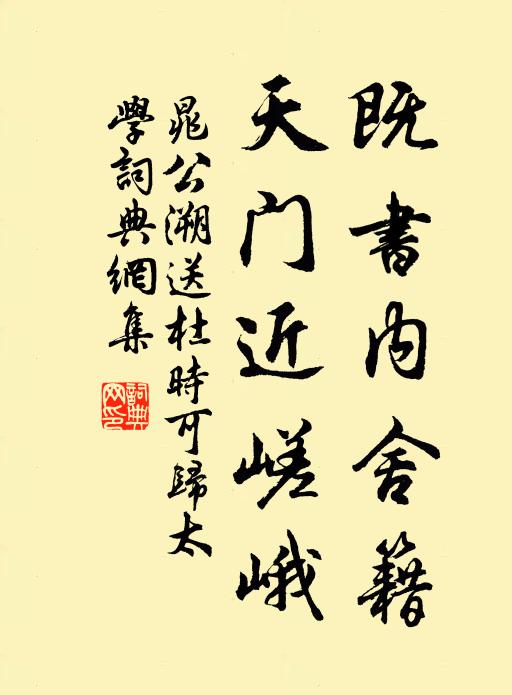 既書内舍籍
天门近嵯峨
晁公溯送杜時可歸太
學詞典網集
詞典網印